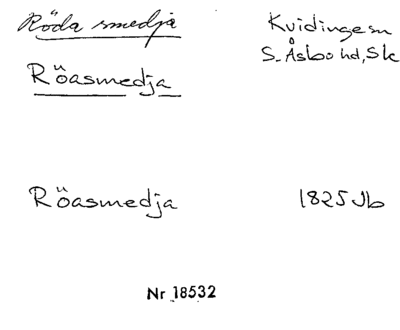 Röda smedja
Kvidinge sn
S. Åsbo hd, Sk
Röasmedja
Röasmedja 1825 Jb
Nr 18532